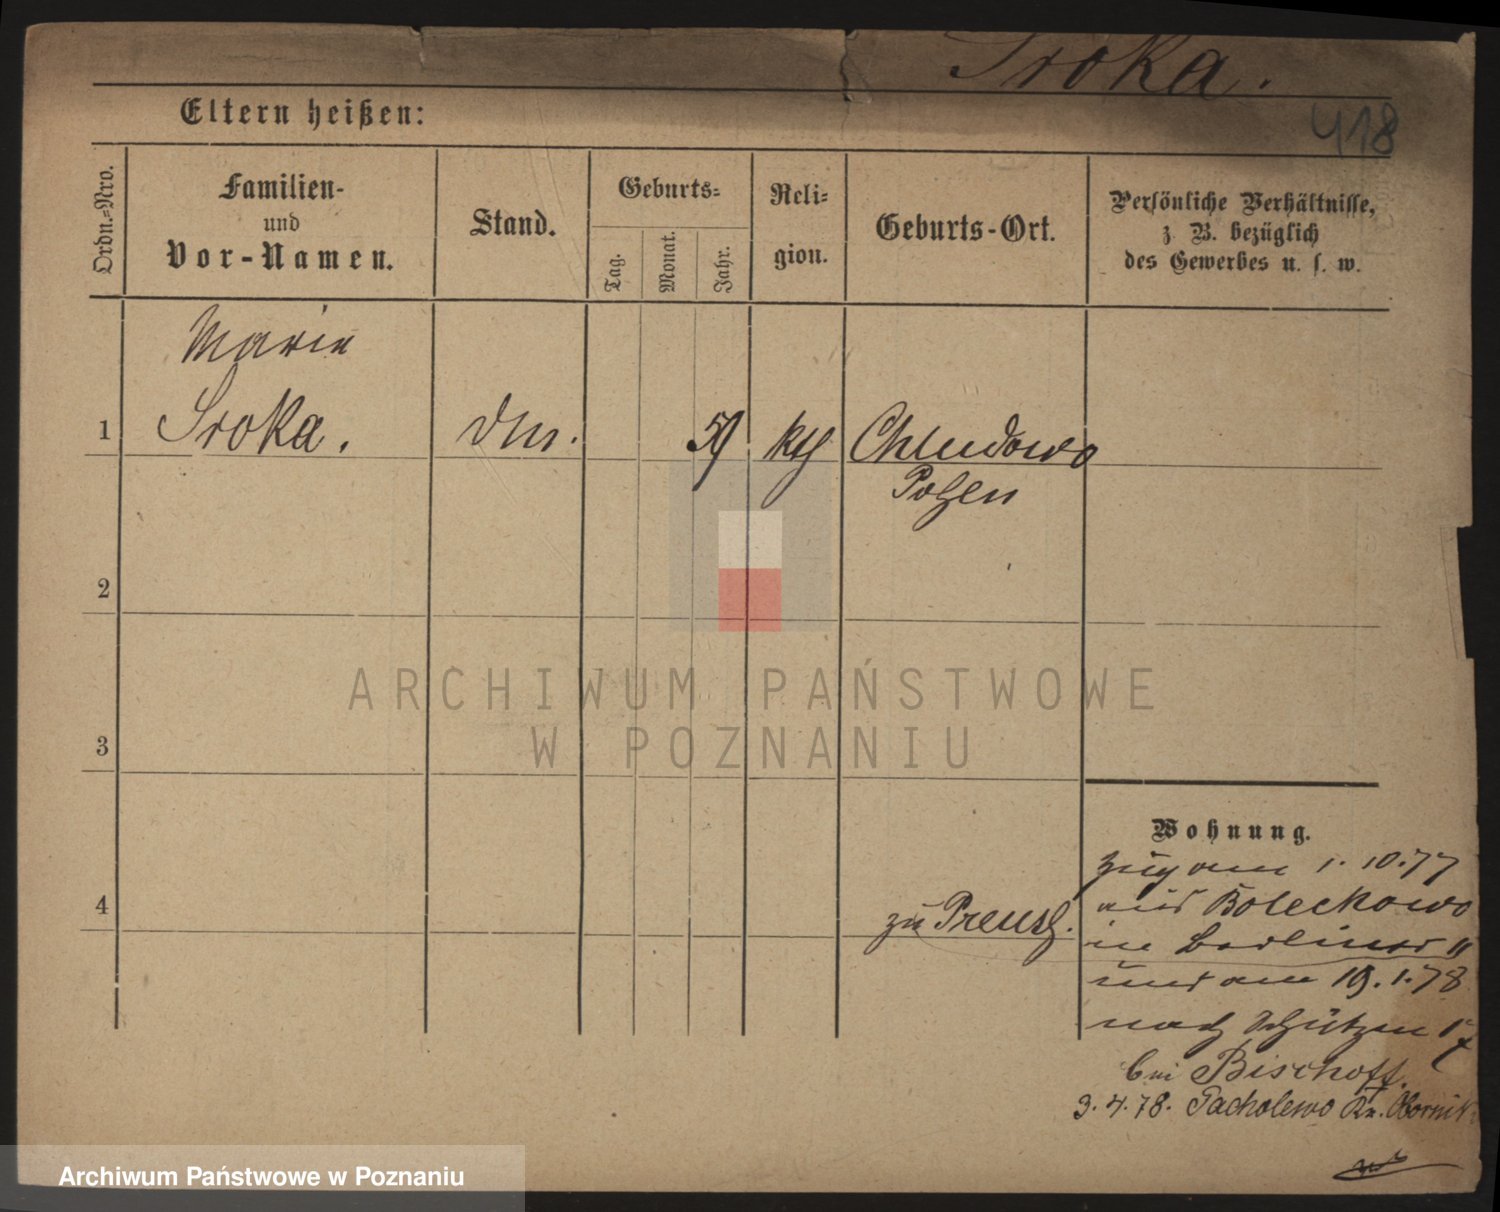 Sroka.
418
Eltern heißen:
Ordn.=Nro.
Familien-
und
Vor-Namen.
Stand.
Geburts=
Tag.
Monat.
Jahr.
Reli=
gion.
Geburts-Ort.
Persönliche Verhältnisse,
z. B. bezüglich
des Gewerbes u. s. w.
Marie
1 Sroka. 59 kth Chludowo
Posen
2
3
4
zu Preuss.
Wohnung.
Zug am 1. 10. 77
aus Boleckowo
in Berliner 11
und am 19. 1. 78
nach Schützen
bei Bischoff.
3. 4. 78. Pacholewo Kr. Obornik
ARCHIWUM PAŃSTWOWE
W POZNANIU
Archiwum Państwowe w Poznaniu